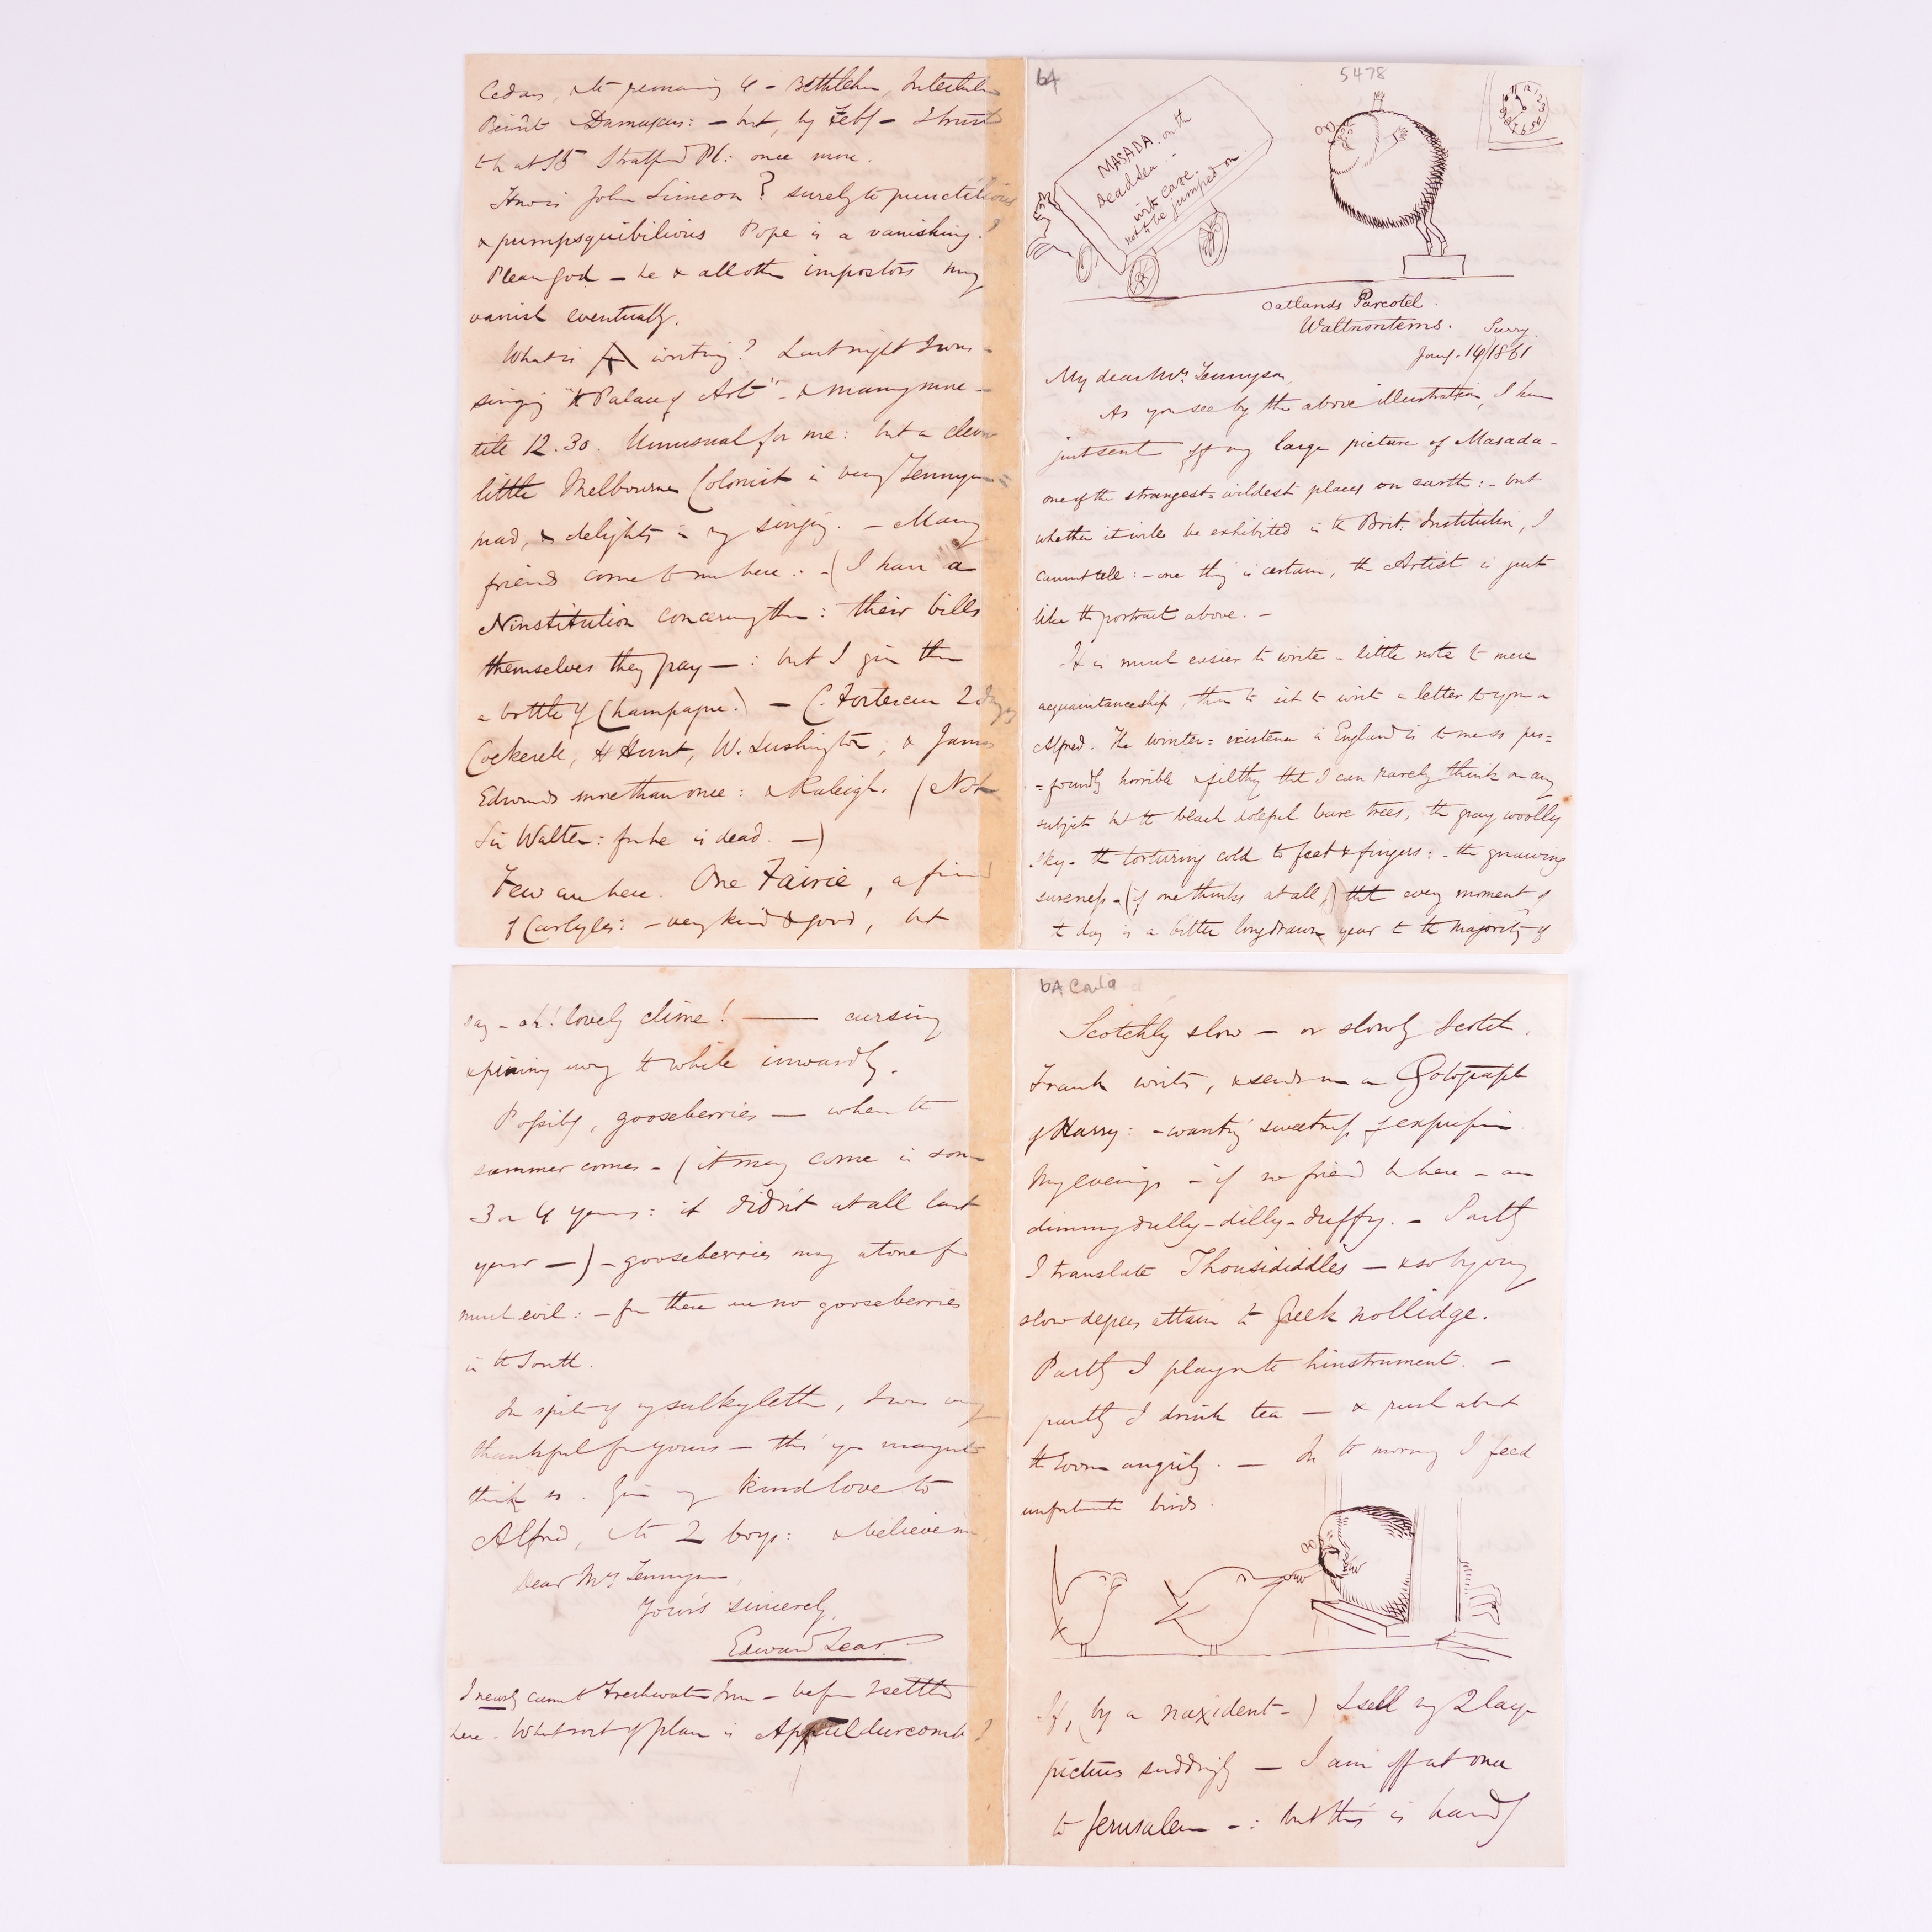 bA
5478
MASADA. on the
Dead Sea. -
with care.
not to be jumped on
12 1 2 3 4 5 6 7 8 9 10 11
Oatlands Parcotel.
Waltnontems. Surry.
Jany. 14/1861
My dear Mrs. Tennyson,
As you see by the above illustration, I have
just sent off my large picture of Masada -
one of the strangest & wildest places on earth: - but
whether it will be exhibited in the Brit: Institution, I
cannot tell: - one thing is certain, the Artist is just
like the portrait above. -
It is much easier to write a little note to mere
acquaintanceship, than to sit to write a letter to you or
Alfred. The winter = existence in England is to me so pro=
=foundly horrible & filthy that I can rarely think on any
subject but the bleak doleful bare trees, the gray woolly
sky - the torturing cold to feet & fingers: - the gnawing
sureness - (if one thinks at all,) that every moment of
the day is a bitter long drawn year to the majority of
say - oh! lovely clime! — cursing
& pining away the while inwardly.
Possibly, gooseberries — when the
summer comes - (it may come in some
3 or 4 years: it didn't at all last
year —) - gooseberries may atone for
much evil: - for there are no gooseberries
in the South.
In spite of my sulky letter, I was very
thankful for yours — tho' you may not
think so. Give my kind love to
Alfred, & the 2 boys: & believe me,
Dear Mrs Tennyson,
Your's sincerely,
Edward Lear.
I nearly came to Freshwater Inn - before I settled
here. What sort of place is Appuldurcombe?
bA Cont'd
Scotchly slow — or slowly Scotch.
Frank writes, & sends me a Photograph
of Harry: - wanting sweetness of expression.
My evenings - if no friend be here - are
dimmydully-dilly-duffy. - Partly
I translate Thousididdles — & so by very
slow degrees attain to Greek nollidge.
Partly I play on the hinstrument. —
partly I drink tea — & rush about
the room angrily. — In the morning I feed
unfortunate birds.
If, (by a naxident -) I sell my 2 large
pictures suddingly — I am off at once
to Jerusalem - : but this is hardly
Cedars, & the remaining 4 - Bethlehem, Interlaken
Beirût Damascus: - but, by Feby - I trust
to be at 15 Stratford Pl: once more.
How is John Simeon? surely the punctilious
& pumpsquibilious Pope is a vanishing?
Please God - he & all other impostors may
vanish eventually.
What is A writing? Last night I was
singing "the Palace of Art" - & many more -
till 12.30. Unusual for me: but a clever
little Melbourne Colonist is very Tennyson =
mad, & delights in my singing. - Many
friends come to me here: - (I have a
Ninstitution concerning them: their bills
themselves they pay — : but I give them
a bottle of Champagne.) — C. Fortescue 2 days
Cockerell, H Hunt, W. Lushington, & James
Edwards more than once: & Raleigh. (Not
Sir Walter: for he is dead. —)
Few are here. One Fairie, a friend
of Carlyles: - very kind & good, but